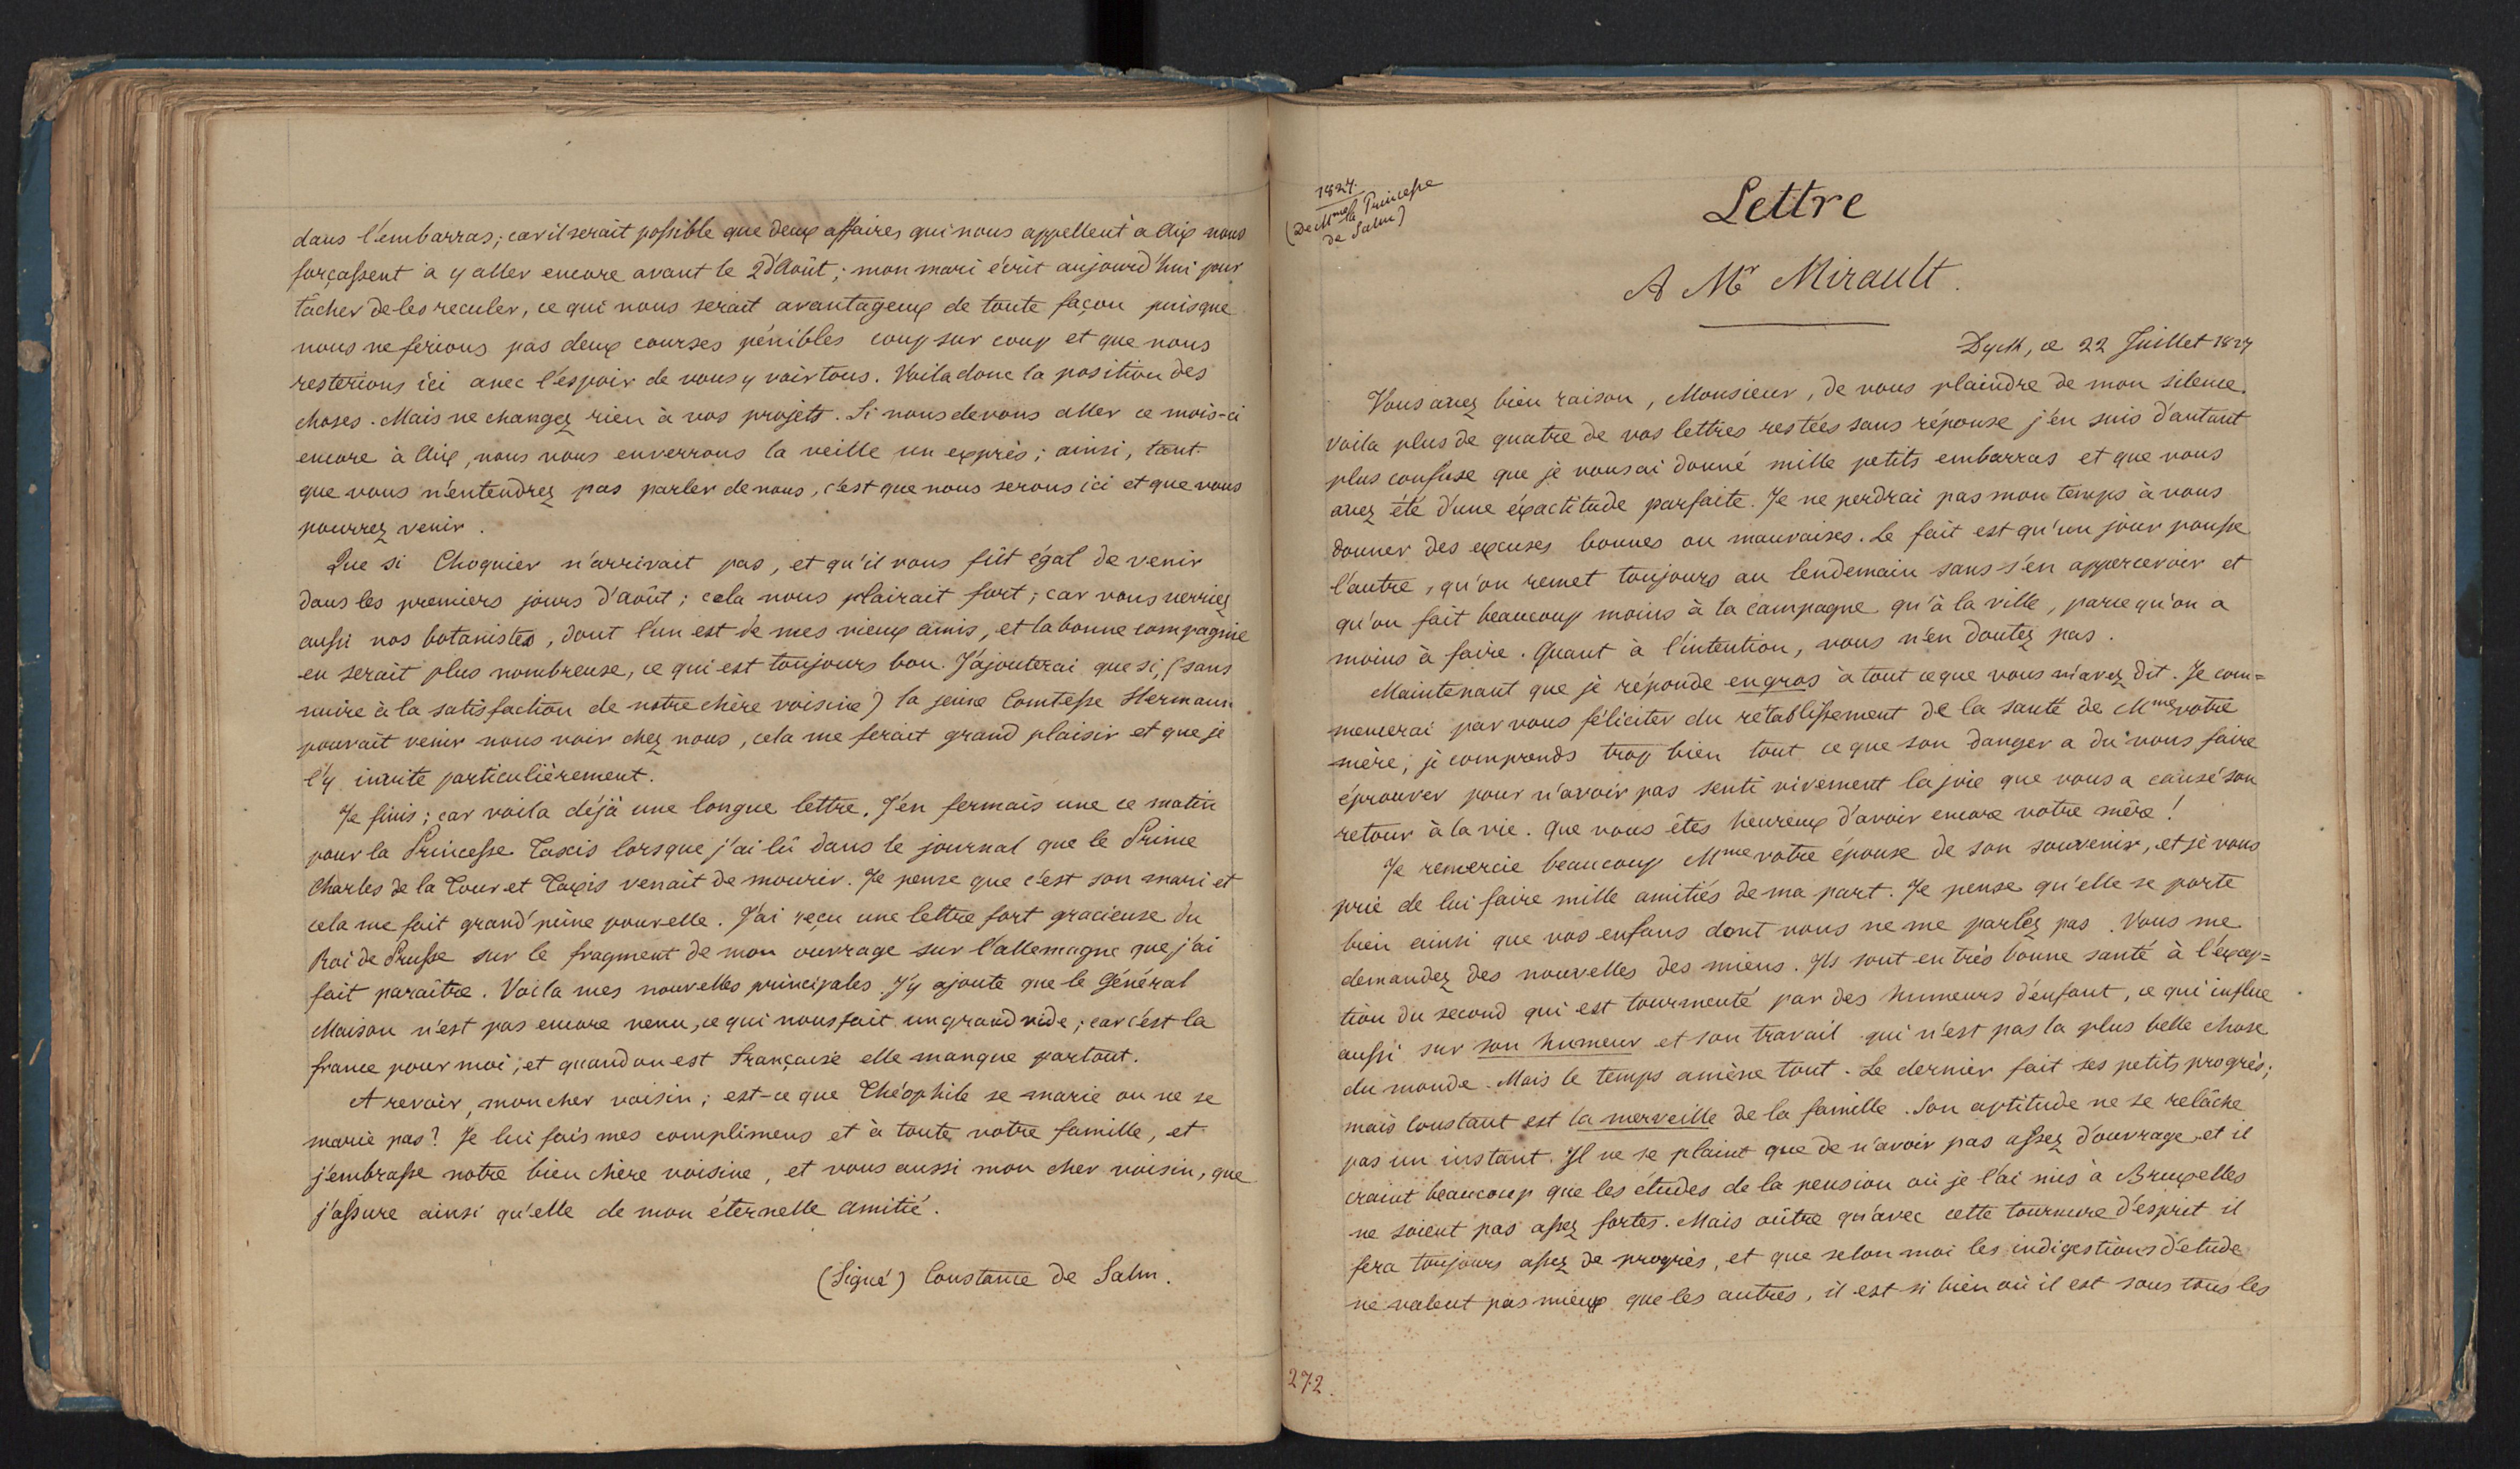 dans l'embarras; car il serait possible que deux affaires qui nous appellent à Aix nous
forçassent à y aller encore avant le 2 d'Août; mon mari écrit aujourd'hui pour
tâcher de les reculer, ce qui nous serait avantageux de toute façon puisque
nous ne ferions pas deux courses pénibles coup sur coup et que nous
resterions ici avec l'espoir de vous y voir tous. Voila donc la position des
choses. Mais ne changez rien à vos projets. Si nous devons aller ce mois-ci
encore à Aix, nous vous enverrons la veille un exprès; ainsi, tant
que vous n'entendrez pas parler de nous, c'est que nous serons ici et que vous
pourrez venir.
Que si Choquier n'arrivait pas, et qu'il vous fût égal de venir
dans les premiers jours d'août; cela nous plairait fort; car vous verriez
aussi nos botanistes, dont l'un est de mes vieux amis, et la bonne compagnie
en serait plus nombreuse, ce qui est toujours bon. J'ajouterai que si, (sans
nuire à la satisfaction de notre chère voisine) la jeune Comtesse Hermann
pouvait venir nous voir chez nous, cela me ferait grand plaisir et que je
l'y invite particulièrement.
Je finis; car voila déjà une longue lettre. J'en fermais une ce matin
pour la Princesse Taxis lorsque j'ai lû dans le journal que le Prince
Charles de la Tour et Taxis venait de mourir. Je pense que c'est son mari et
cela me fait grand'peine pour elle. J'ai reçu une lettre fort gracieuse du
Roi de Prusse sur le fragment de mon ouvrage sur l'allemagne que j'ai
fait paraître. Voila mes nouvelles principales. J'y ajoute que le Général
Maison n'est pas encore venu, ce qui nous fait un grand vide; car c'est la
france pour moi; et quand on est française elle manque partout.
A revoir, mon cher voisin; est-ce que Théophile se marie ou ne se
marie pas? Je lui fais mes complimens et à toute votre famille, et
j'embrasse notre bien chère voisine, et vous aussi mon cher voisin, que
j'assure ainsi qu'elle de mon éternelle amitié.
(Signé) Constance de Salm.
1827.
(De Mme la Princesse
de Salm)
Lettre
A Mr Mirault.
Dyck, ce 22 Juillet 1827
Vous avez bien raison, Monsieur, de vous plaindre de mon silence.
voila plus de quatre de vos lettres restées sans réponse j'en suis d'autant
plus confuse que je vous ai donné mille petits embarras et que vous
avez été d'une éxactitude parfaite. Je ne perdrai pas mon temps à vous
donner des excuses bonnes ou mauvaises. Le fait est qu'un jour pousse
l'autre, qu'on remet toujours au lendemain sans s'en appercevoir et
qu'on fait beaucoup moins à la campagne qu'à la ville, parce qu'on a
moins à faire. Quant à l'intention, vous n'en doutez pas.
Maintenant que je réponde en gros à tout ce que vous m'avez dit. Je com=
mencerai par vous féliciter du rétablissement de la santé de Mme votre
mère; je comprends trop bien tout ce que son danger a du vous faire
éprouver pour n'avoir pas senti vivement la joie que vous a causé son
retour à la vie. Que vous êtes heureux d'avoir encore votre mère!
Je remercie beaucoup Mme votre épouse de son souvenir, et je vous
prie de lui faire mille amitiés de ma part. Je pense qu'elle se porte
bien ainsi que vos enfans dont vous ne me parlez pas. Vous me
demandez des nouvelles des miens. Ils sont en très bonne santé à l'excep=
tion du second qui est tourmenté par des humeurs d'enfant, ce qui influe
aussi sur son humeur et son travail qui n'est pas la plus belle chose
du monde. Mais le temps amène tout. Le dernier fait ses petits progrès;
mais Constant est la merveille de la famille. Son aptitude ne se relâche
pas un instant. Il ne se plaint que de n'avoir pas assez d'ouvrage et il
craint beaucoup que les études de la pension où je l'ai mis à Bruxelles
ne soient pas assez fortes. Mais oûtre qu'avec cette tournure d'esprit il
fera toujours assez de progrès, et que selon moi les indigestions d'etude
ne valent pas mieux que les autres, il est si bien où il est sous tous les
272.